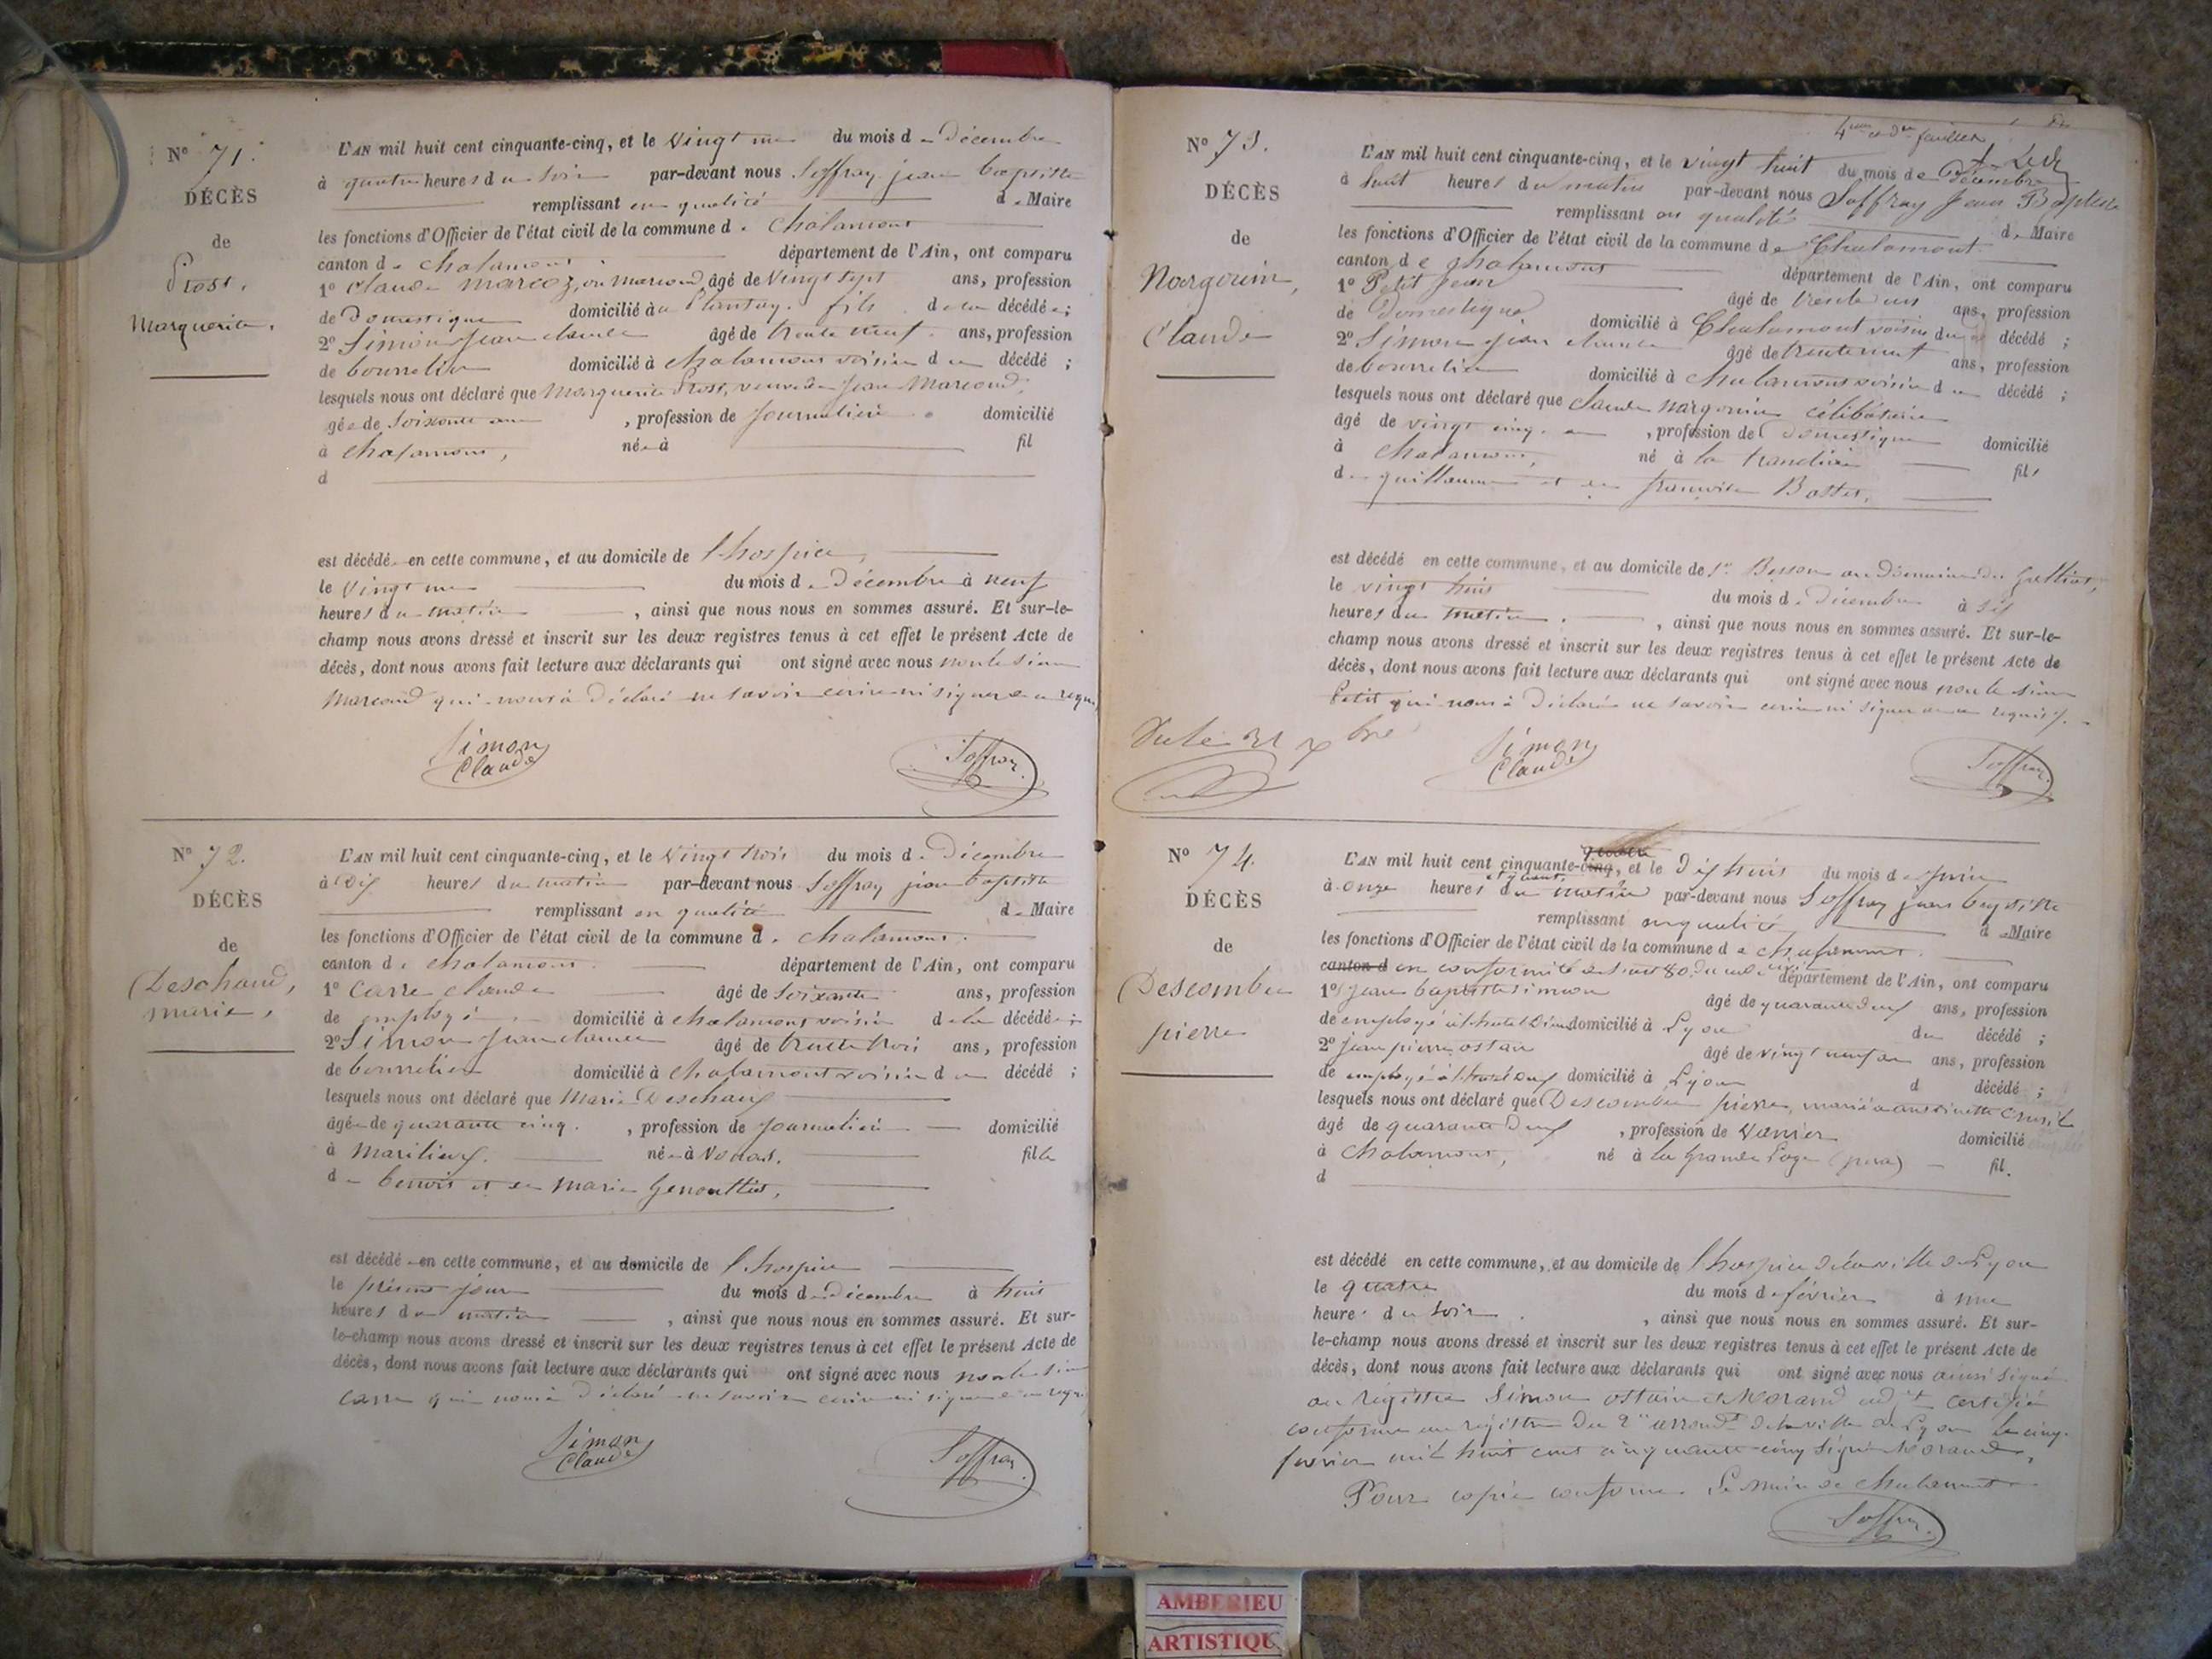 N° 71.
DÉCÈS
de
Prost,
Marguerite,
L'AN mil huit cent cinquante-cinq, et le vingt un du mois de Décembre
à quatre heures du soir par-devant nous Joffray jean baptiste
remplissant en qualité de Maire
les fonctions d'Officier de l'état civil de la commune de Chalamont
canton de Chalamont département de l'Ain, ont comparu
1° Claude Marcoz, ou Marcond, âgé de vingt sept ans, profession
de Domestique domicilié au Plantay. fils de la décédée;
2° Simon Jean claude âgé de trente neuf. ans, profession
de bourrelier domicilié à chalamont voisin du décédé ;
lesquels nous ont déclaré que Marguerite Prost, veuve de Jean Marcond,
âgée de soixante ans , profession de Journalière domicilié
à Chalamont, née à fil
d
est décédée en cette commune, et au domicile de l'hospice,
le vingt un du mois de Décembre à neuf
heures du matin , ainsi que nous nous en sommes assuré. Et sur-le-
champ nous avons dressé et inscrit sur les deux registres tenus à cet effet le présent Acte de
décès, dont nous avons fait lecture aux déclarants qui ont signé avec nous non le sieur
Marcond qui nous a déclaré ne savoir écrire ni signer de ce requis
Simon
Claude
Joffray
N° 72.
DÉCÈS
de
Deschaud,
marie,
L'AN mil huit cent cinquante-cinq, et le vingt trois du mois de Décembre
à Dix heures du matin par-devant nous Joffray jean baptiste
remplissant en qualité de Maire
les fonctions d'Officier de l'état civil de la commune de chalamont.
canton de chalamont. département de l'Ain, ont comparu
1° Carre claude âgé de soixante ans, profession
de employé domicilié à chalamont voisin de la décédée ;
2° Simon Jean claude âgé de trente trois ans, profession
de bourrelier domicilié à Chalamont voisin du décédé ;
lesquels nous ont déclaré que Marie Deschaux
âgée de quarante cinq. , profession de Journalière domicilié
à Marlieux. née à fille
de benoit et de Marie
est décédée en cette commune, et au domicile de l'hospice
le présent jour du mois de décembre à huit
heures du matin , ainsi que nous nous en sommes assuré. Et sur-
le-champ nous avons dressé et inscrit sur les deux registres tenus à cet effet le présent Acte de
décès, dont nous avons fait lecture aux déclarants qui ont signé avec nous non le sieur
Carre qui nous a déclaré ne savoir écrire ni signer de ce requis
Simon
Claude
Joffray
4me et der feuillet
N° 73.
DÉCÈS
de
Nargouin,
Claude
L'AN mil huit cent cinquante-cinq, et le vingt huit du mois de Décembre
à huit heures du matin par-devant nous Joffray Jean Baptiste
remplissant en qualité de Maire
les fonctions d'Officier de l'état civil de la commune de Chalamont
canton de chalamont département de l'Ain, ont comparu
1° Petit Jean âgé de trente un ans, profession
de Domestique domicilié à Chalamont voisin du décédé ;
2° Simon jean claude âgé de trente neuf ans, profession
de bourrelier domicilié à chalamont voisin du décédé ;
lesquels nous ont déclaré que claude nargouin célibataire
âgé de vingt cinq ans , profession de Domestique domicilié
à Chalamont, né à la tranclière fils
de guillaume et de françoise
est décédé en cette commune, et au domicile de sr. Besson au Domaine du
le vingt huit du mois de Décembre à six
heures du matin , ainsi que nous nous en sommes assuré. Et sur-le-
champ nous avons dressé et inscrit sur les deux registres tenus à cet effet le présent Acte de
décès, dont nous avons fait lecture aux déclarants qui ont signé avec nous non le sieur
Petit qui nous a déclaré ne savoir écrire ni signer de ce requis
31 xbre
Simon
Claude
Joffray
N° 74.
DÉCÈS
de
Descombe
pierre
L'AN mil huit cent cinquante-cinq, et le Dix huit du mois de juin
à onze heures du matin par-devant nous Joffray jean baptiste
remplissant en qualité de Maire
les fonctions d'Officier de l'état civil de la commune de chalamont.
canton d en conformité de l'art 80. du code civil département de l'Ain, ont comparu
1° jean baptiste simon âgé de quarante deux ans, profession
de employé à l'hotel Dieu domicilié à Lyon du décédé ;
2° jean pierre ostain âgé de vingt neuf ans ans, profession
de employé à l'hotel domicilié à Lyon d décédé ;
lesquels nous ont déclaré que Descombe pierre, marié à antoinette
âgé de quarante deux , profession de Vanier domicilié
à Chalamont, né à la Grande Loge (jura) fil.
d
est décédé en cette commune, et au domicile de l'hospice de la ville de Lyon
le quatre du mois de février à une
heure du soir , ainsi que nous nous en sommes assuré. Et sur-
le-champ nous avons dressé et inscrit sur les deux registres tenus à cet effet le présent Acte de
décès, dont nous avons fait lecture aux déclarants qui ont signé avec nous ainsi signé
au registre Simon ostain et Morand adjt certifié
conforme au registre du 2me arrondt de la ville de Lyon le cinq
février mil huit cent cinquante cinq signé Morand,
Pour copie conforme Le Maire de Chalamont
Joffray
AMBERIEU
ARTISTIQUE